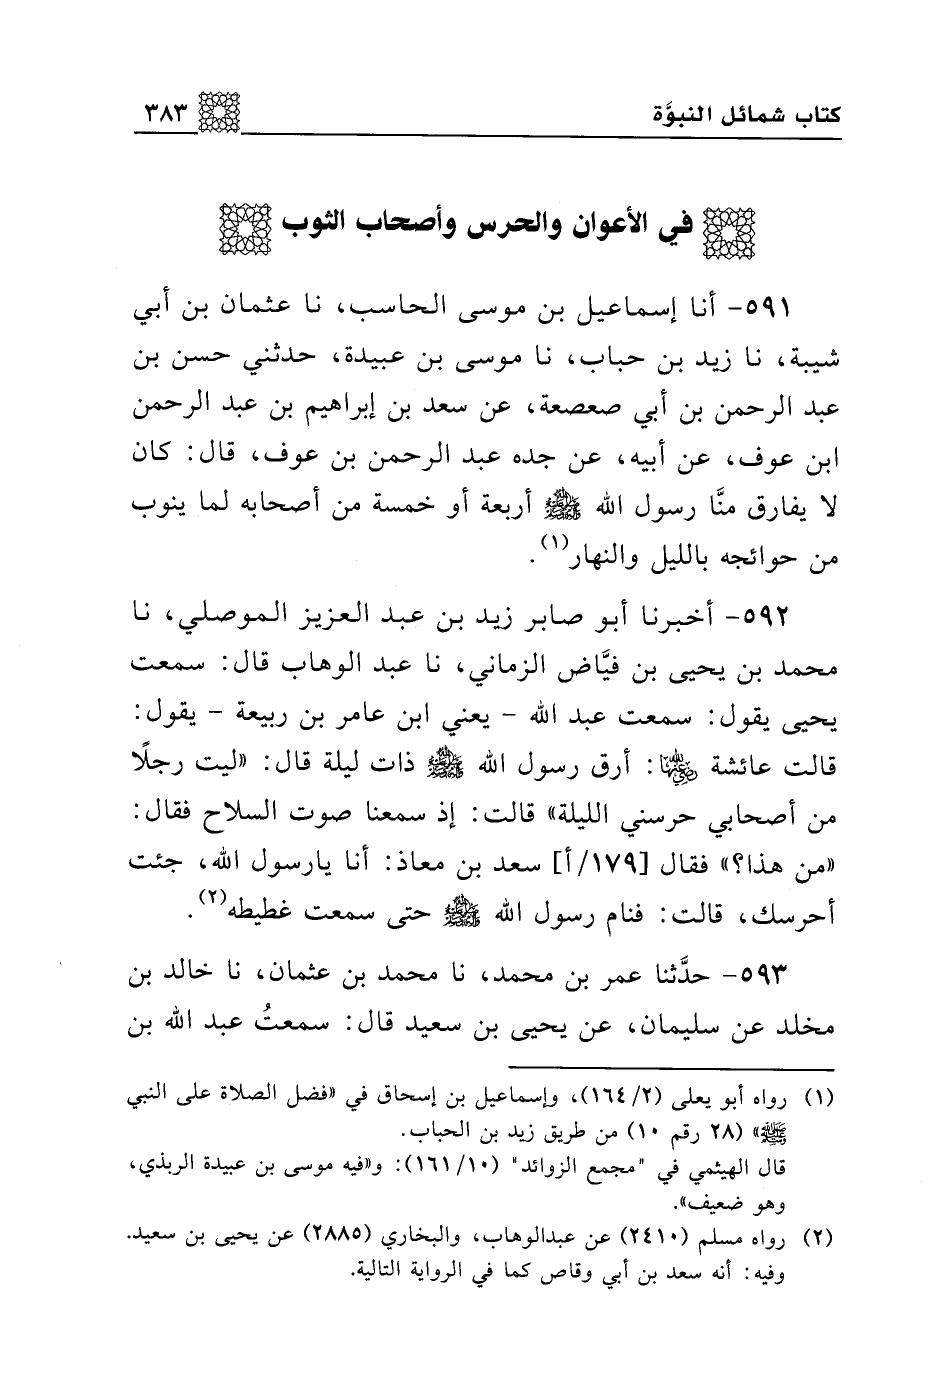 كتاب شمائل النبوَّة
٣٨٣
في الأعوان والحرس وأصحاب الثوب
٥٩١- أنا إسماعيل بن موسى الحاسب، نا عثمان بن أبي
شيبة، نا زيد بن حباب، نا موسى بن عبيدة، حدثني حسن بن
عبد الرحمن بن أبي صعصعة، عن سعد بن إبراهيم بن عبد الرحمن
ابن عوف، عن أبيه، عن جده عبد الرحمن بن عوف، قال: كان
لا يفارق منَّا رسول الله ﷺ أربعة أو خمسة من أصحابه لما ينوب
من حوائجه بالليل والنهار(١).
٥٩٢- أخبرنا أبو صابر زيد بن عبد العزيز الموصلي، نا
محمد بن يحيى بن فيَّاض الزماني، نا عبد الوهاب قال: سمعت
يحيى يقول: سمعت عبد الله - يعني ابن عامر بن ربيعة - يقول:
قالت عائشة رضي الله عنها: أرق رسول الله ﷺ ذات ليلة قال: «ليت رجلًا
من أصحابي حرسني الليلة» قالت: إذ سمعنا صوت السلاح فقال:
«من هذا؟» فقال [١٧٩/أ] سعد بن معاذ: أنا يارسول الله، جئت
أحرسك، قالت: فنام رسول الله ﷺ حتى سمعت غطيطه(٢).
٥٩٣- حدَّثنا عمر بن محمد، نا محمد بن عثمان، نا خالد بن
مخلد عن سليمان، عن يحيى بن سعيد قال: سمعتُ عبد الله بن
(١) رواه أبو يعلى (١٦٤/٢)، وإسماعيل بن إسحاق في «فضل الصلاة على النبي
ﷺ» (٢٨ رقم ١٠) من طريق زيد بن الحباب.
قال الهيثمي في "مجمع الزوائد" (١٦١/١٠): و«فيه موسى بن عبيدة الربذي،
وهو ضعيف».
(٢) رواه مسلم (٢٤١٠) عن عبدالوهاب، والبخاري (٢٨٨٥) عن يحيى بن سعيد.
وفيه: أنه سعد بن أبي وقاص كما في الرواية التالية.